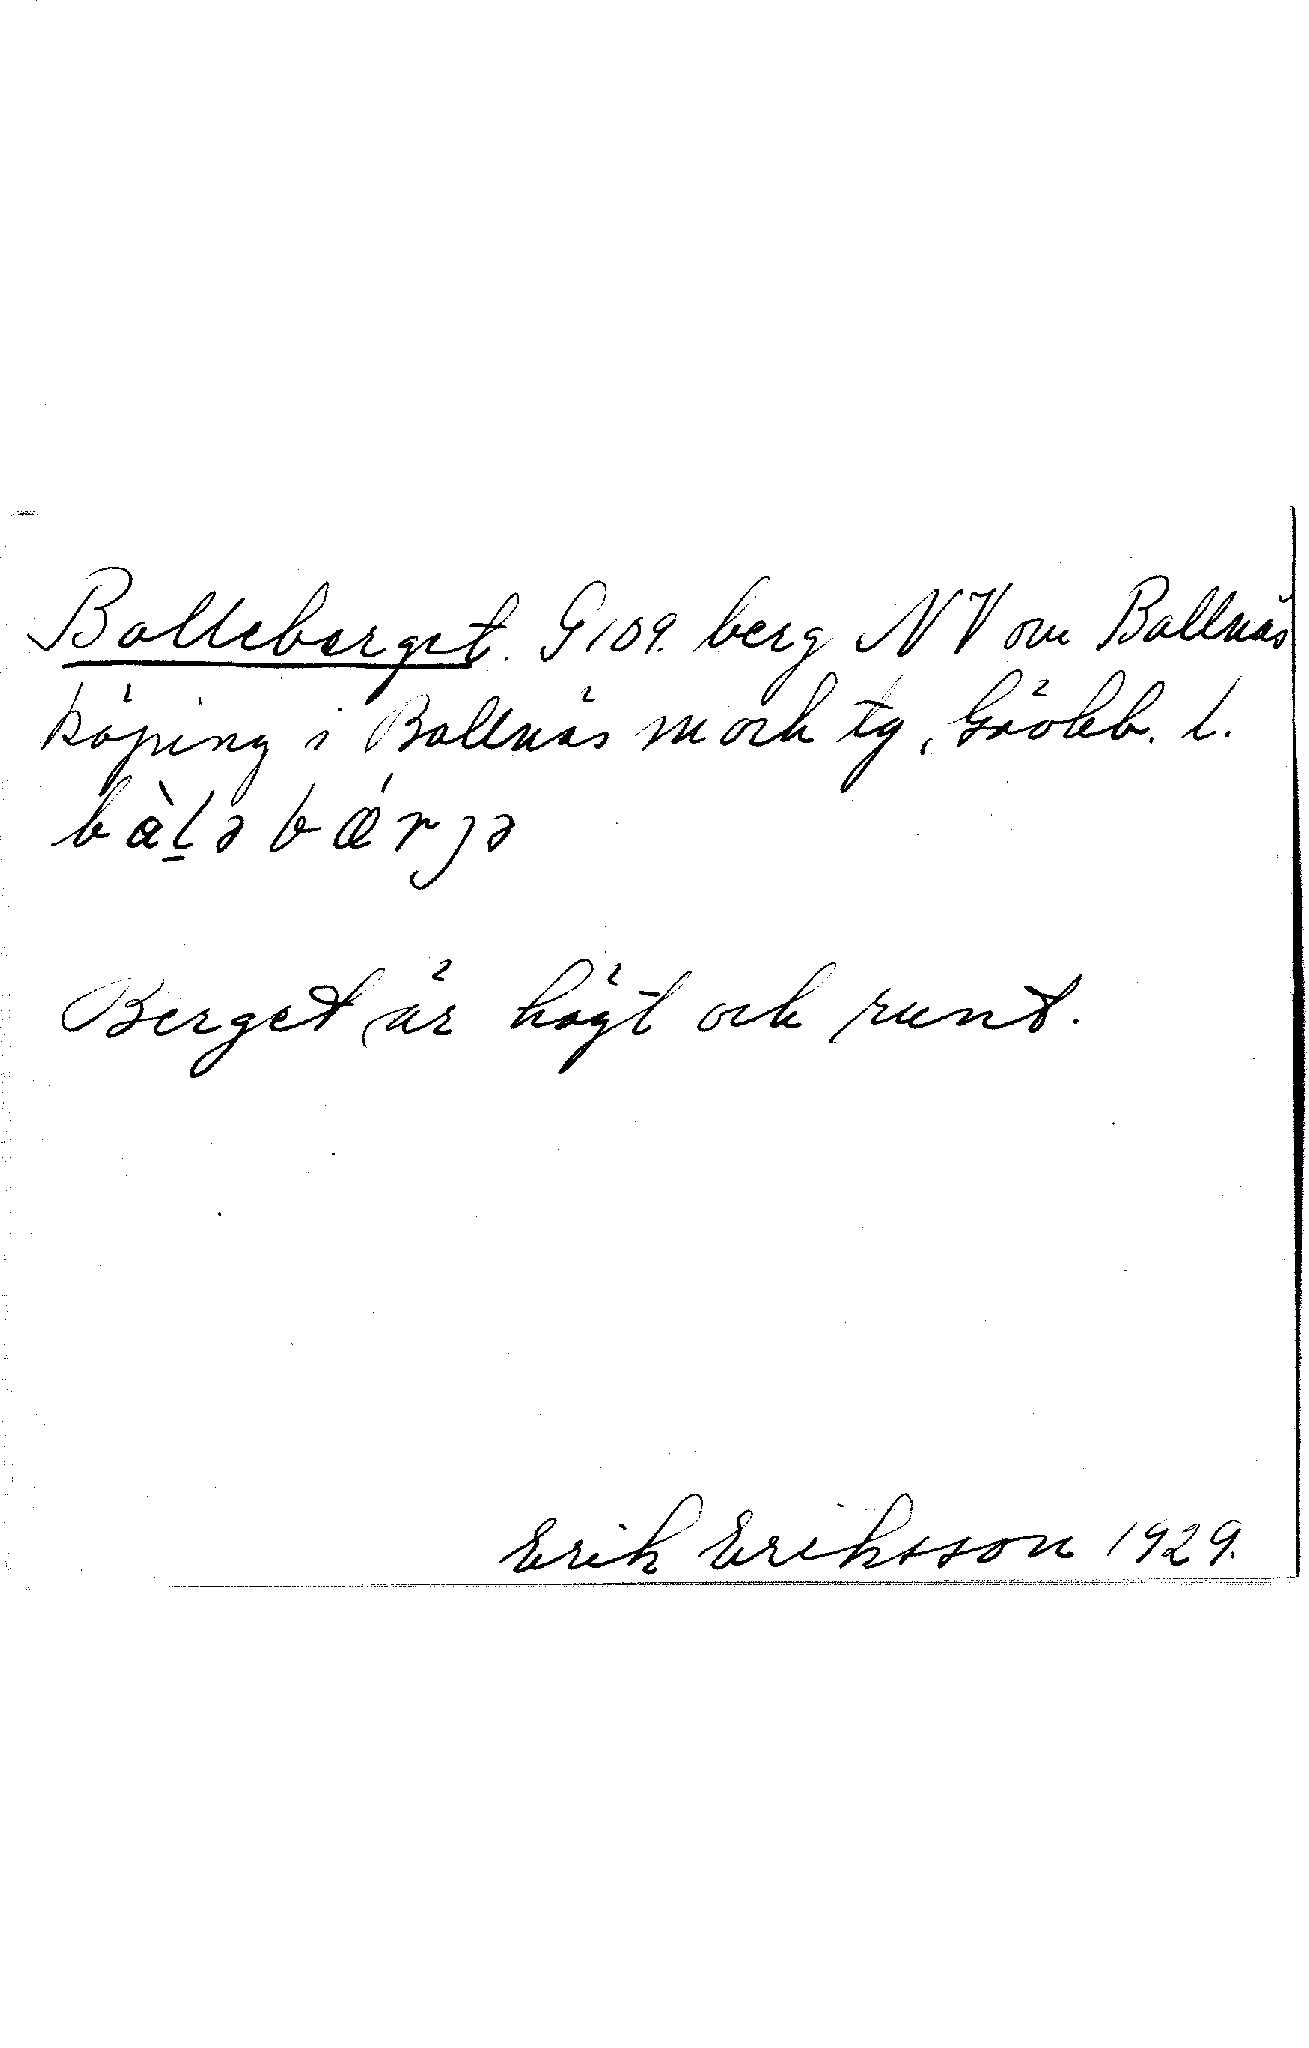 Balleberget. G109. berg NV om Bollnäs
köping i Bollnäs m och tg, Gävleb. l.
bàl̠ə bǽrjə
Berget är högt och runt.
Erik Eriksson 1929.